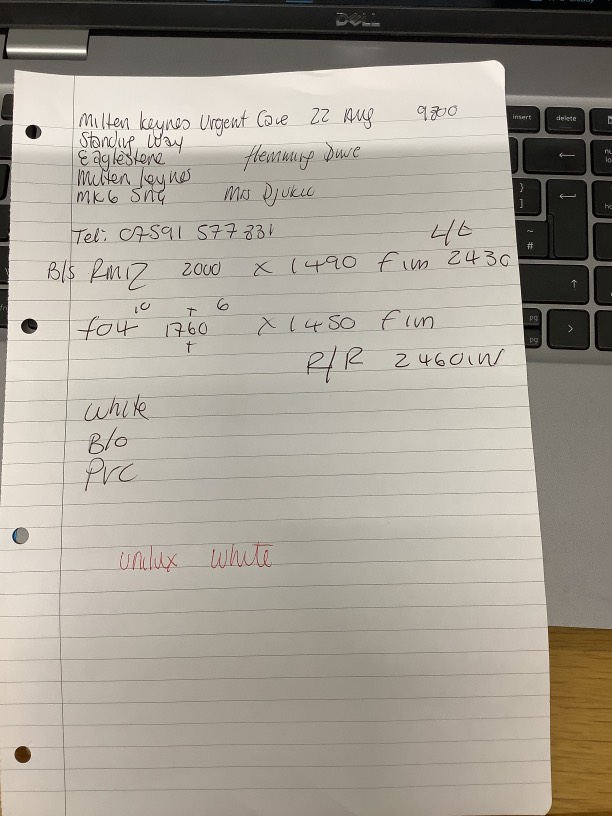 DELL
insert
delete
Milten Keynes Urgent Care 22 Aug 9300
Standing Way
Eaglestone
Flemming Duve
Milten Keynes
MK6 5NG
Mrs Djukic
Tel: 07591 577 331
L/L
B/s RM12 2000 X 1490 Fim 2430
10 + 6
fo4 1760 X 1450 Fim
+
R/R 2460 IW
White
B/o
PVC
unilux white
pg
pg